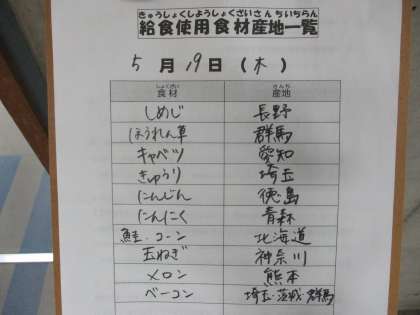 きゅうしょくしようしょくざいさんちいちらん
給食使用食材産地一覧
5月19日(木)
しょくざい さんち
食材 産地
しめじ 長野
ほうれん草 群馬
キャベツ 愛知
きゅうり 埼玉
にんじん 徳島
にんにく 青森
鮭・コーン 北海道
玉ねぎ 神奈川
メロン 熊本
ベーコン 埼玉・茨城・群馬